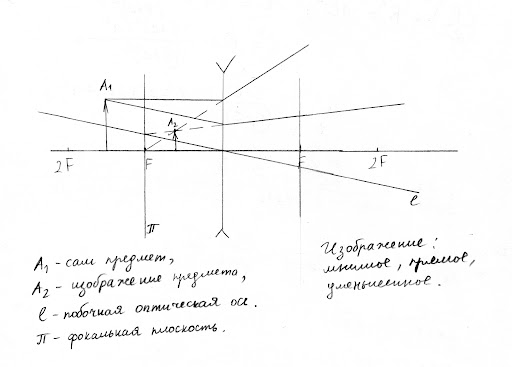 A₁
A₂
2F
F
F
2F
ℓ
π
A₁ - сам предмет,
A₂ - изображение предмета,
ℓ - побочная оптическая ос.
π - фокальная плоскость.
Изображение:
мнимое, прямое,
уменьшенное.